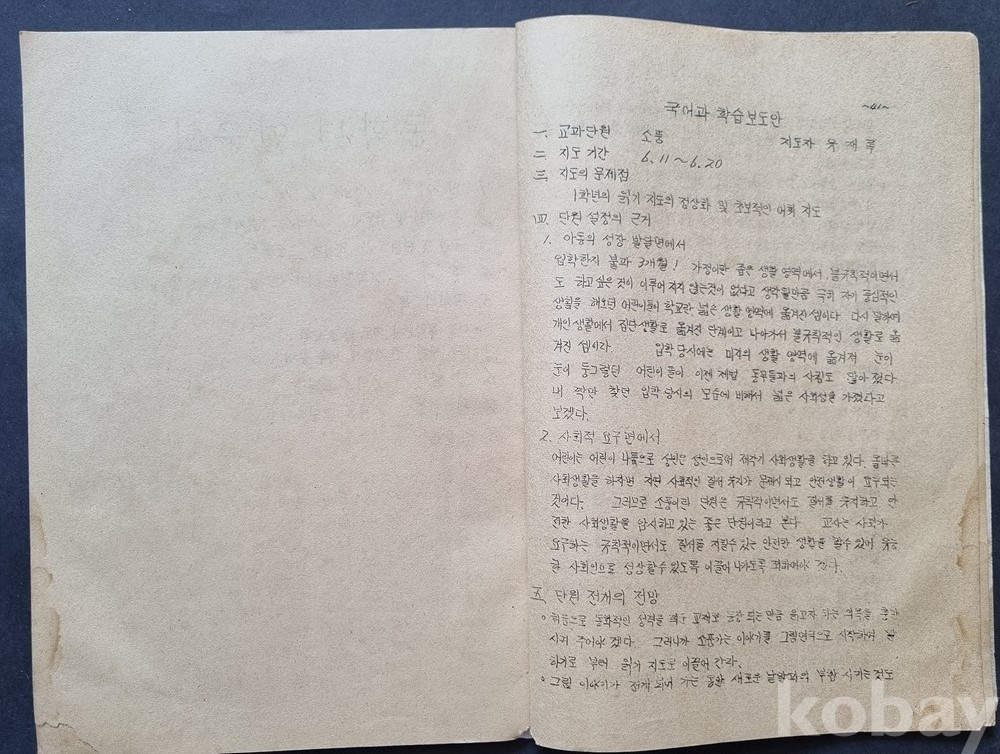 ~41~
국어과 학습보도안
一. 교과단원 소풍 지도자 재
二. 지도 기간 6.11～6.20
三. 지도의 문제점
1학년의 읽기 지도의 정상화 및 초보적인 어휘 지도
四. 단원 설정의 근거
1. 아동의 성장 발달면에서
입학한지 불과 3개월! 가정이란 좁은 생활 영역에서 불규칙적이면서
도 하고 싶은 것이 이루어 지지 않는것이 없다고 생각할만큼 극히 자기 중심적인
생활을 해오던 어린이들이 학교란 넓은 생활 영역에 옮겨진 셈이다. 다시 말하면
개인생활에서 집단생활로 옮겨진 단계이고 나아가서 불규칙적인 생활로 옮
겨진 셈이라. 입학 당시에는 미지의 생활 영역에 옮겨져 눈이
눈이 둥그렇던 어린이들이 이젠 제법 동무들과의 사귐도 많아 졌다
내 짝만 찾던 입학 당시의 모습에 비해서 넓은 사회성을 가졌다고
보겠다.
2. 사회적 요구면에서
어린이는 어린이 나름으로 성인은 성인으로써 제각기 사회생활을 하고 있다. 올바른
사회생활을 하자면 자연 사회적인 질서 유지가 문제시 되고 안전생활이 요구되는
것이다. 그러므로 소풍이란 단원은 규칙적이면서도 질서를 유지하고 안
전한 사회생활을 암시하고 있는 좋은 단원이라고 본다 교사는 사회가
요구하는 규칙적이면서도 질서를 지킬수 있는 안전한 생활을 할수 있어 유능
한 사회인으로 성장할수 있도록 이끌어 나가도록 적하여야 겠다.
五. 단원 전개의 전망
○처음으로 동화적인 성격을 띠운 교재로 등장 되는 만큼 읽고자 하는 의욕을 충만
시켜 주어야 겠다. 그러니까 소풍가는 이야기를 그림연극으로 시작하여 말
하기로 부터 읽기 지도로 이끌어 간다.
○그림 이야기가 전개 되어 가는 동안 새로운 낱말과의 부합 시키는것도
kobay